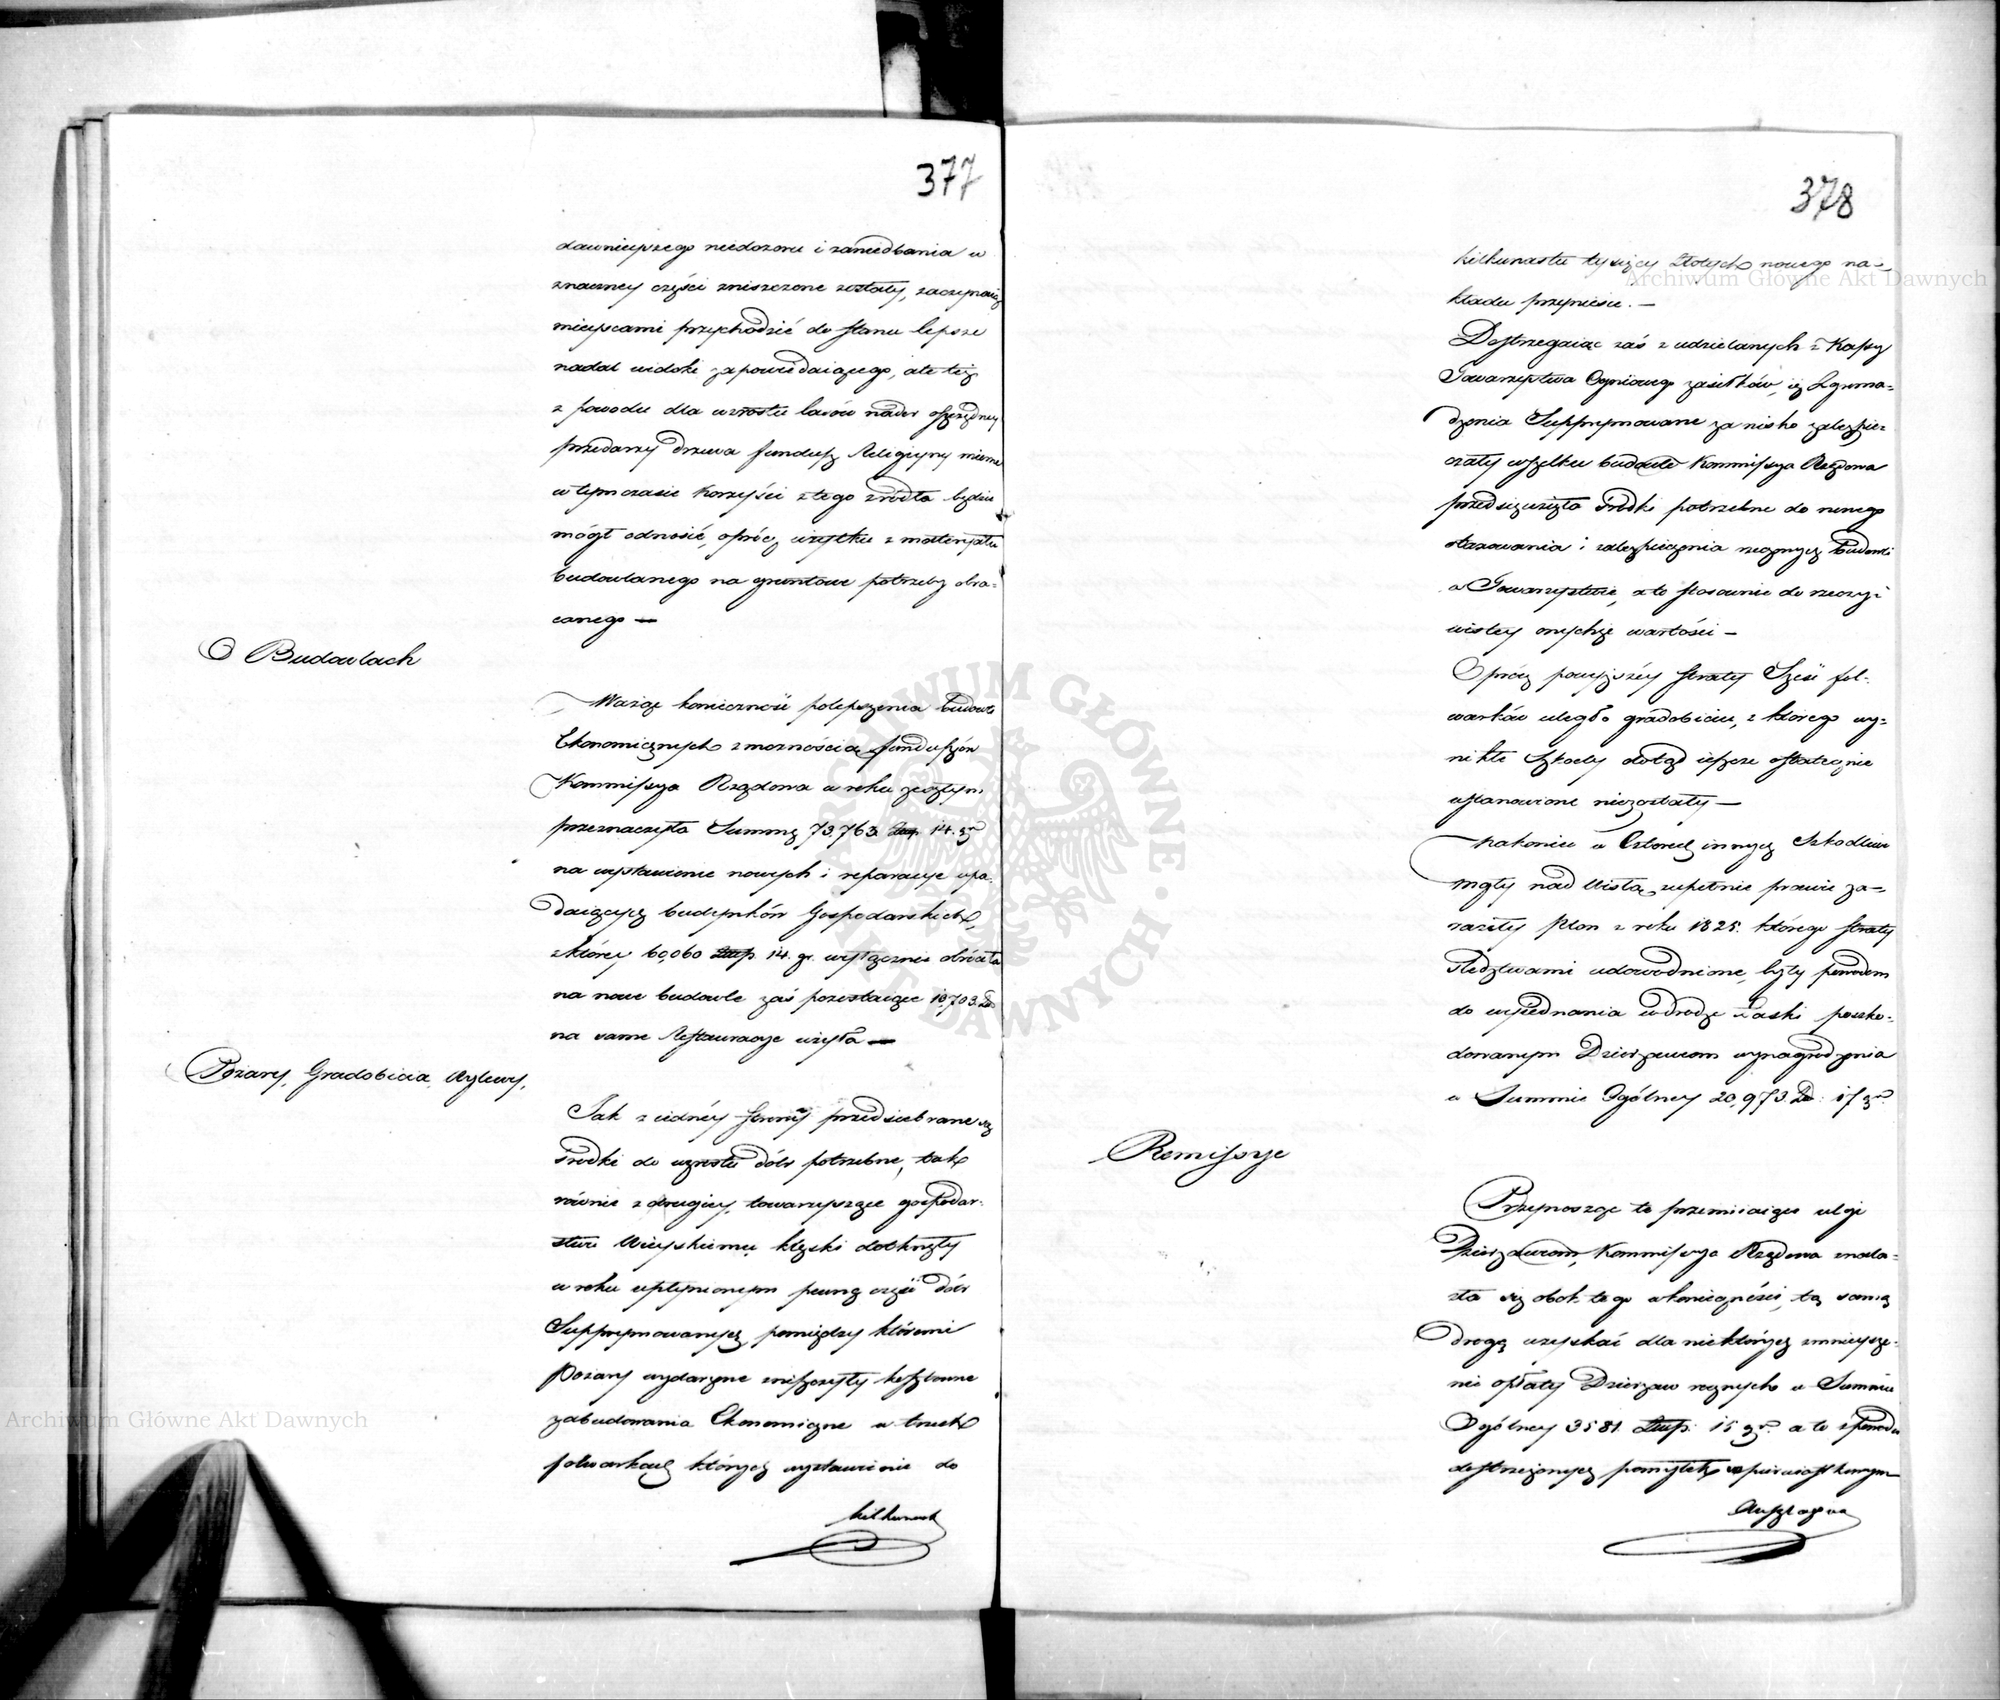 377
dawnieyszego niedozoru i zaniedbania w
znaczney części zniszczone zostały, zaczynaią
mieyscami przychodzić do stanu lepsze
nadal widoki zapowiedaiącego, ale też
z powodu dla wzrostu lasów nader oszczędney
przedarzy drzewa fundusz Religiyny mierne
w tym czasie korzyści z tego źródła będzie
mógł odnosić, oprócz użytku z materyału
budowlanego na gruntowe potrzeby obra=
canego —
O Budowlach
Ważąc konieczność polepszenia budowli
Ekonomicznych z możnością funduszów
Kommissya Rządowa w roku zeszłym
przeznaczyła Summę 73,763 Złłp. 14. gr
na wystawienie nowych i reparacye upa=
daiących budynków Gospodarskich,
z któréy 60,060 Złłp. 14. gr. wyłącznie obróciła
na nowe budowle zaś pozostaiące 13,703. Zł
na same Restauracye użyła —
Pożary, Gradobicia, wylewy,
Jak z iednéy strony przedsiebrane są
środki do wzrostu dóbr potrzebne, tak
równie z drugiey, towarzyszące gospodar=
stwu Wieyskiemu klęski dotknęły
w roku upłynionym pewną część dóbr
Suppрymowanych, pomiędzy któremi
Pożary wydarzone zniszczyły kosztowne
zabudowania Ekonomiczne w trzech
folwarkach których wystawienie do
kilkunastu
378
kilkunastu tysięcy Złotych nowego na=
kładu przyniesie. —
Dostrzegaiąc zaś z udzielanych z Kassy
Towarzystwa Ogniowego zasiłków, iż Zgroma=
dzenia Supprymowane za nisko zabezpie=
czały wszelkie budowle Kommissya Rządowa
przedsięwzięła środki potrzebne do nowego
otaxowania i zabezpieczenia rocznych budowli
w Towarzystwie, a to stosownie do rzeczy=
wistey onychże wartości —
Oprócz powyższéy straty Sześć fol=
warków uległo gradobiciu, z którego wy=
nikłe Szkody dotąd ieszcze ostatecznie
ustanowione niezostały —
Nakoniec w Czterech innych Szkodliwe
mgły nad Wisłą zupełnie prawie za=
raziły Plon z roku 1825. którego straty
śledztwami udowodnione, były powodem
do wyiednania w drodze Łaski poszko=
dowanym Dzierzawcom wynagrodzenia
w Summie Ogólney 20,973. Zł. 17 gr.
Remissye
Przynosząc te przemiiaiące ulgi
Dzierzawcom, Kommissya Rządowa znala=
zła się obok tego w konieczności, tą samą
drogą uzyskać dla niektórych zmnieysze=
nie opłaty Dzierzaw rocznych w Summie
Ogólney 3581. Złłp. 15 gr. a to z powodu
dostrzeżonych pomyłek w pierwiastkowym
Anszlagowa